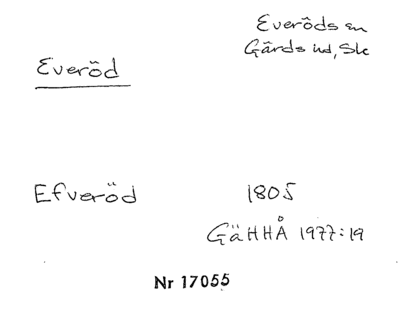 Everöds sn
Gärds hd, Sk
Everöd
Efveröd 1805
GäHHÅ 1977:19
Nr 17055